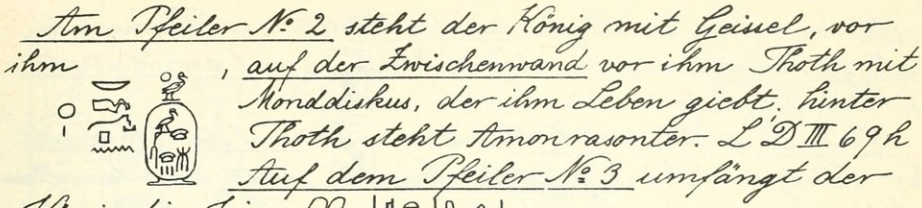 Am Pfeiler No 2 steht der König mit Geissel, vor
ihm , auf der Zwischenwand vor ihm Thoth mit
Monddiskus, der ihm Leben giebt, hinter
Thoth steht Amonrasonter. L'D III 69 h
Auf dem Pfeiler No 3 umfängt der